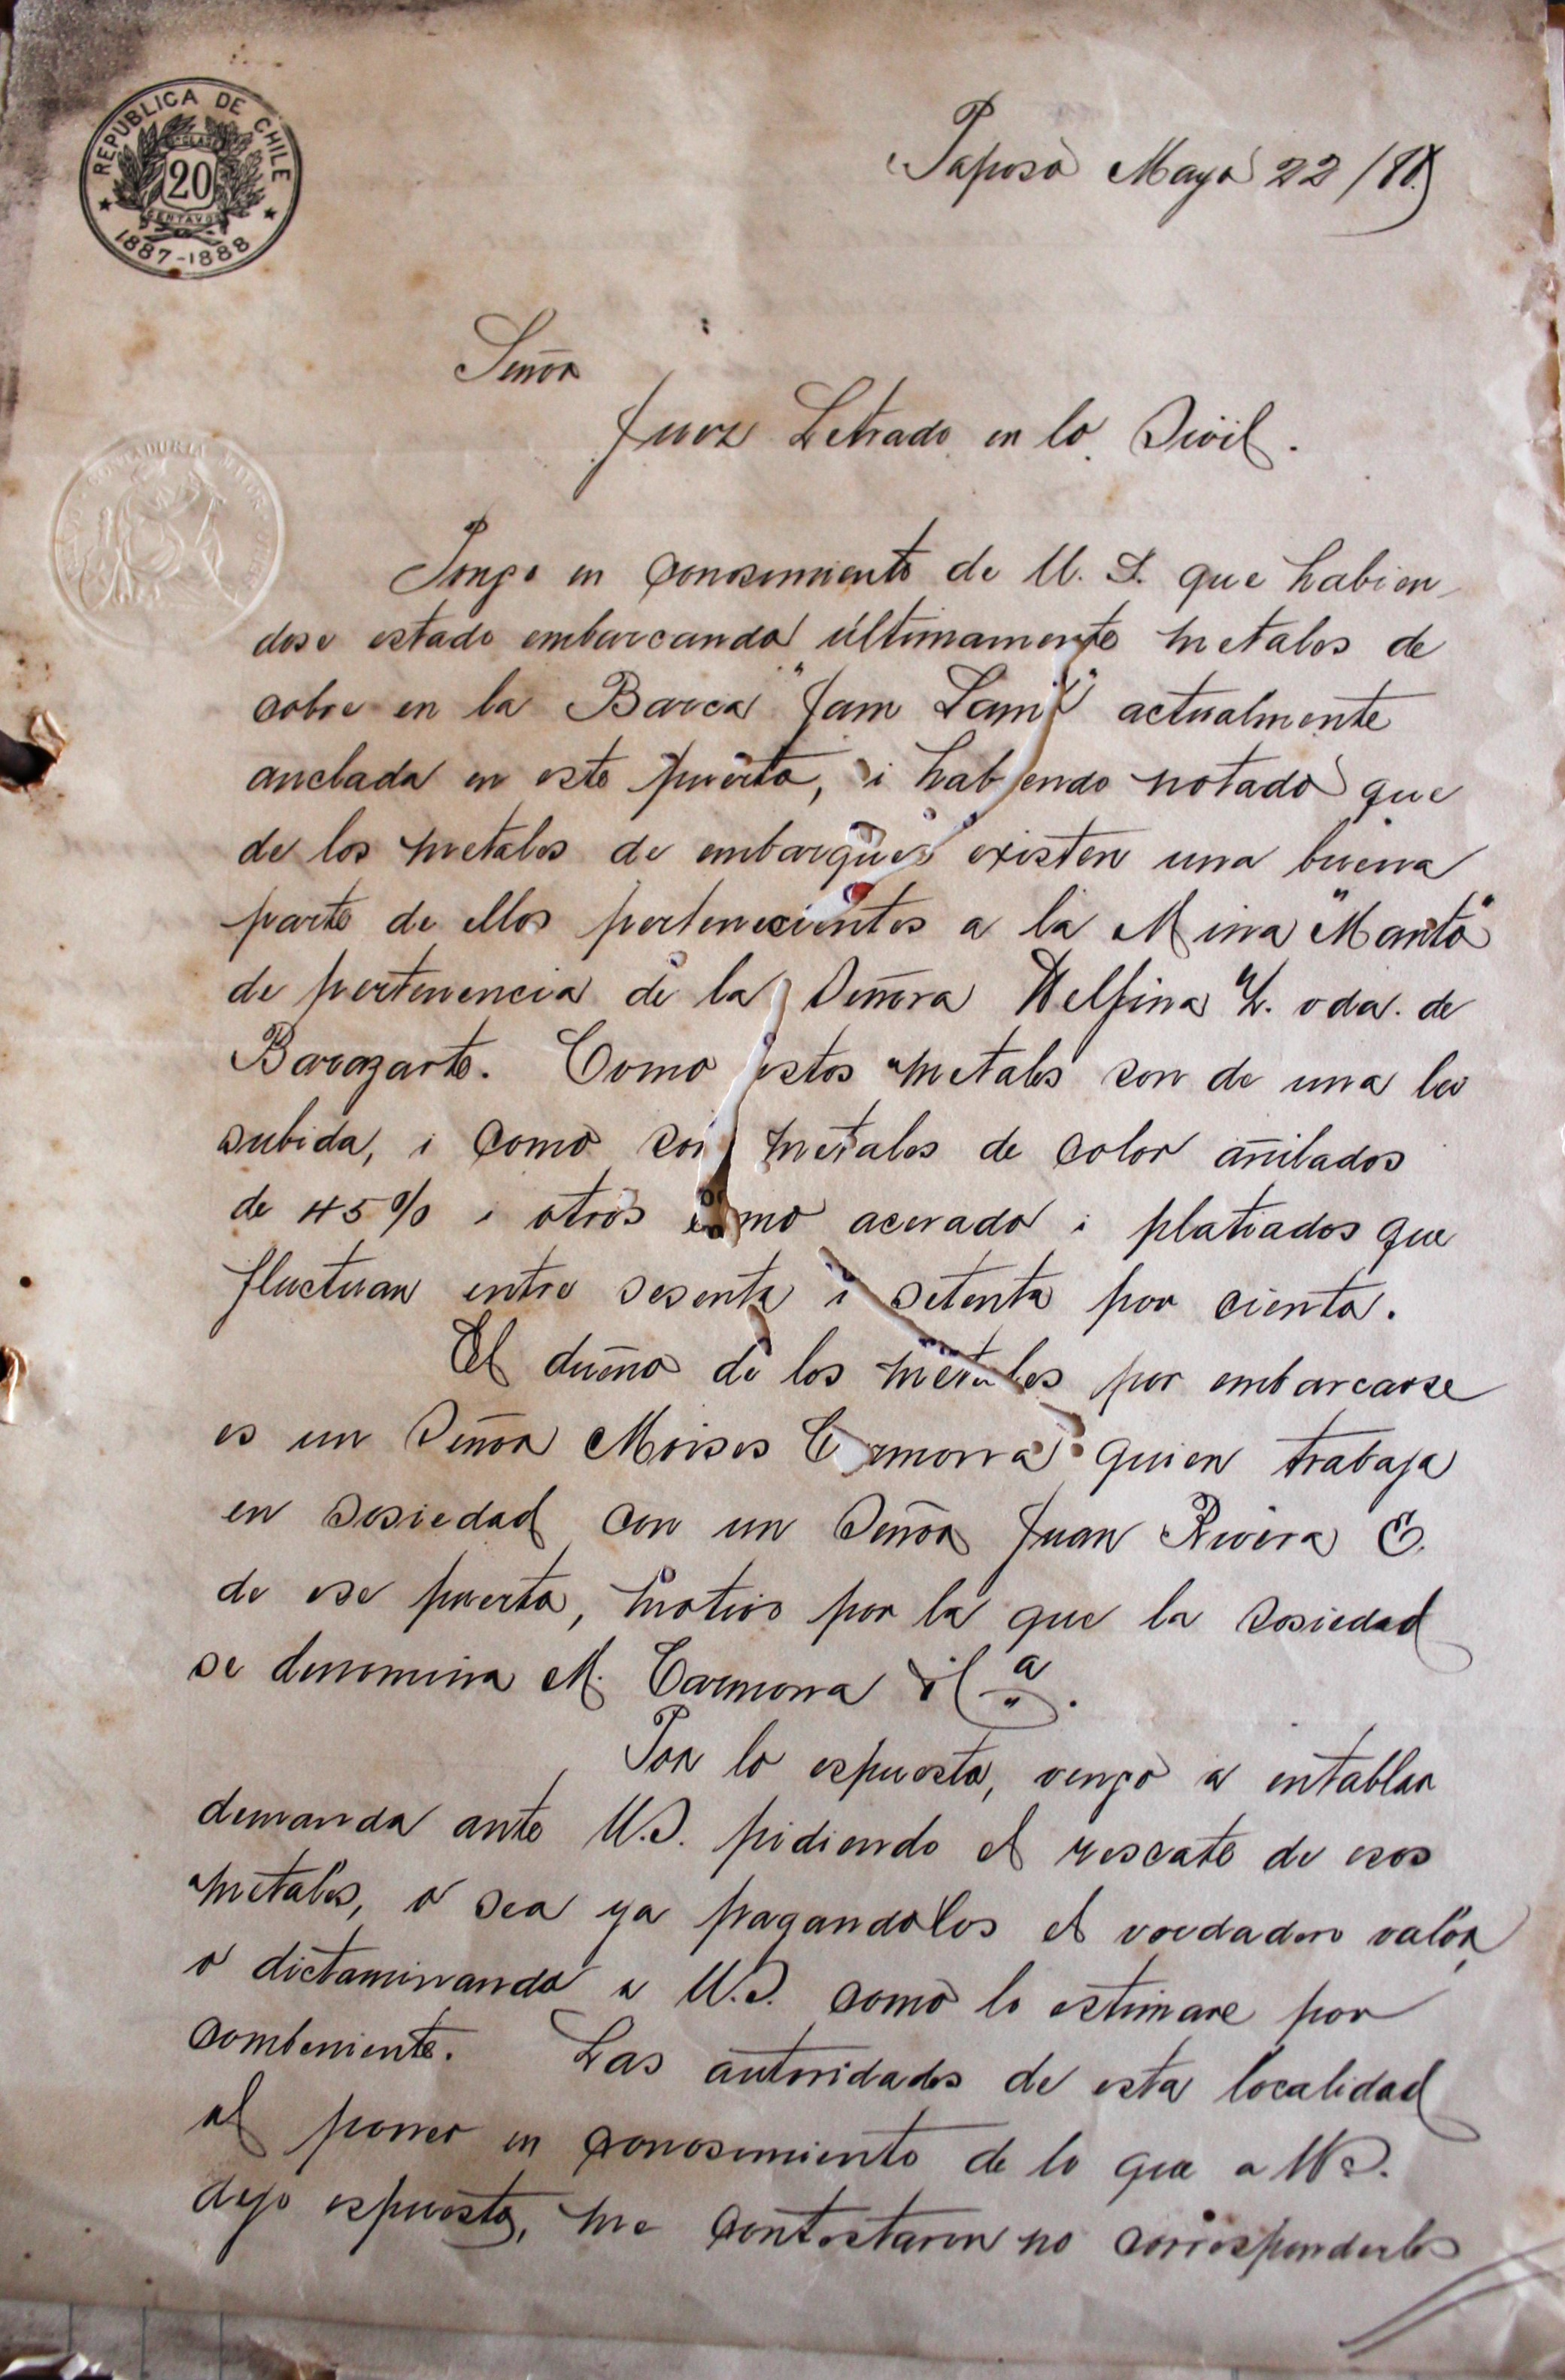 REPUBLICA DE CHILE
20
CENTAVOS
1887-1888
Paposo Mayo 22/88
Señor
Juez Letrado en lo Sivil.
CONTADURIA MAYOR
Pongo en conosimiento de U. S. que habien-
dose estado embarcando últimamente metales de
cobre en la Barca "Jam" actualmente
anclada en este puerto, i habiendo notado que
de los metales de embarque existen una buena
parte de ellos pertenecientes a la Mina "Manto"
de pertenencia de la Señora Delfina Z. vda. de
Barazarte. Como estos metales son de una lei
subida, i como son metales de color añilados
de 45% i otros como acerado i platiados que
fluctuan entre sesenta i setenta por ciento.
El dueño de los metales por embarcarse
es un Señor Moises Carmona quien trabaja
en sosiedad con un Señor Juan Rivera C.
de ese puerto, motivo por la que la sosiedad
se denomina M. Carmona i Ca.
Por lo espuesto, vengo a entablar
demanda ante U.S. pidiendo el rescate de esos
metales, o sea ya pagandolos el verdadero valor,
o dictaminando a U.S. como lo estimare por
combeniente. Las autoridades de esta localidad
al poner en conosimiento de lo que a US.
dejo espuesto, me contestaron no corresponderles